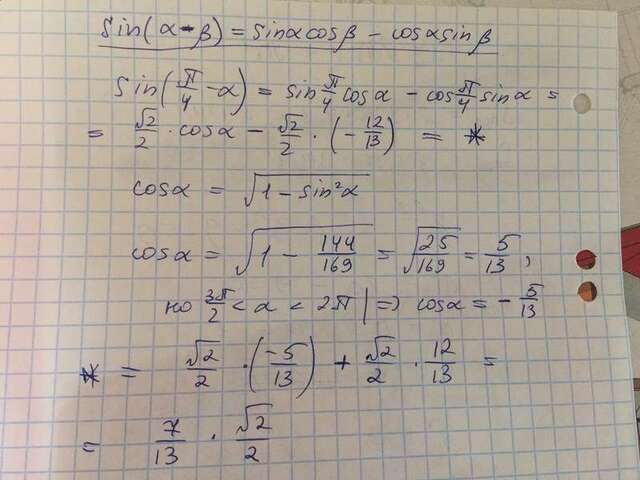 sin(α-β) = sinαcosβ - cosαsinβ
sin(π/4 - α) = sin π/4 cosα - cos π/4 sinα =
= √2/2 · cosα - √2/2 · (-12/13) = *
cosα = √(1 - sin²α)
cosα = √(1 - 144/169) = √(25/169) = 5/13,
но 3π/2 < α < 2π | => cosα = -5/13
* = √2/2 · (-5/13) + √2/2 · 12/13 =
= 7/13 · √2/2